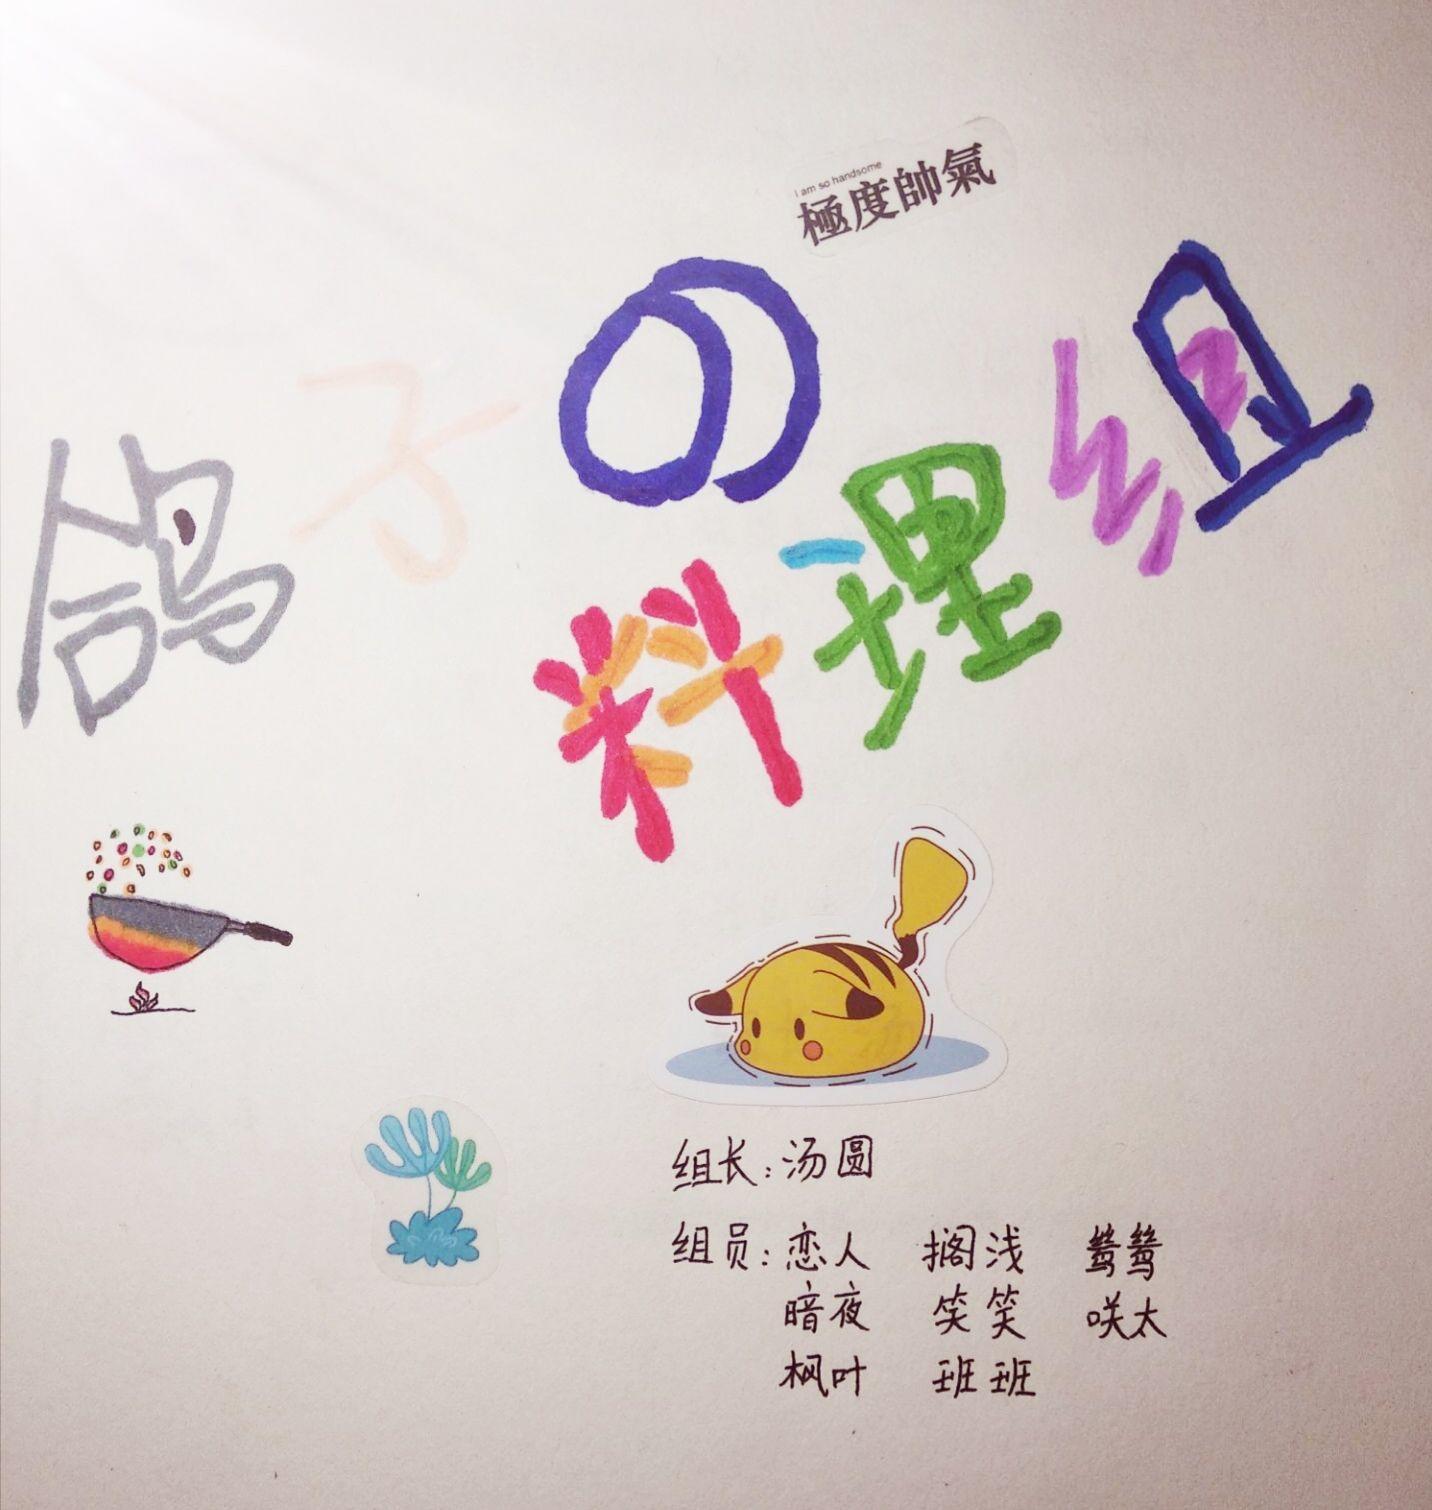 i am so handsome
極度帥氣
鸽子の
料理组
组长：汤圆
组员：恋人 搁浅 鸶鸶
暗夜 笑笑 咲太
枫叶 班班